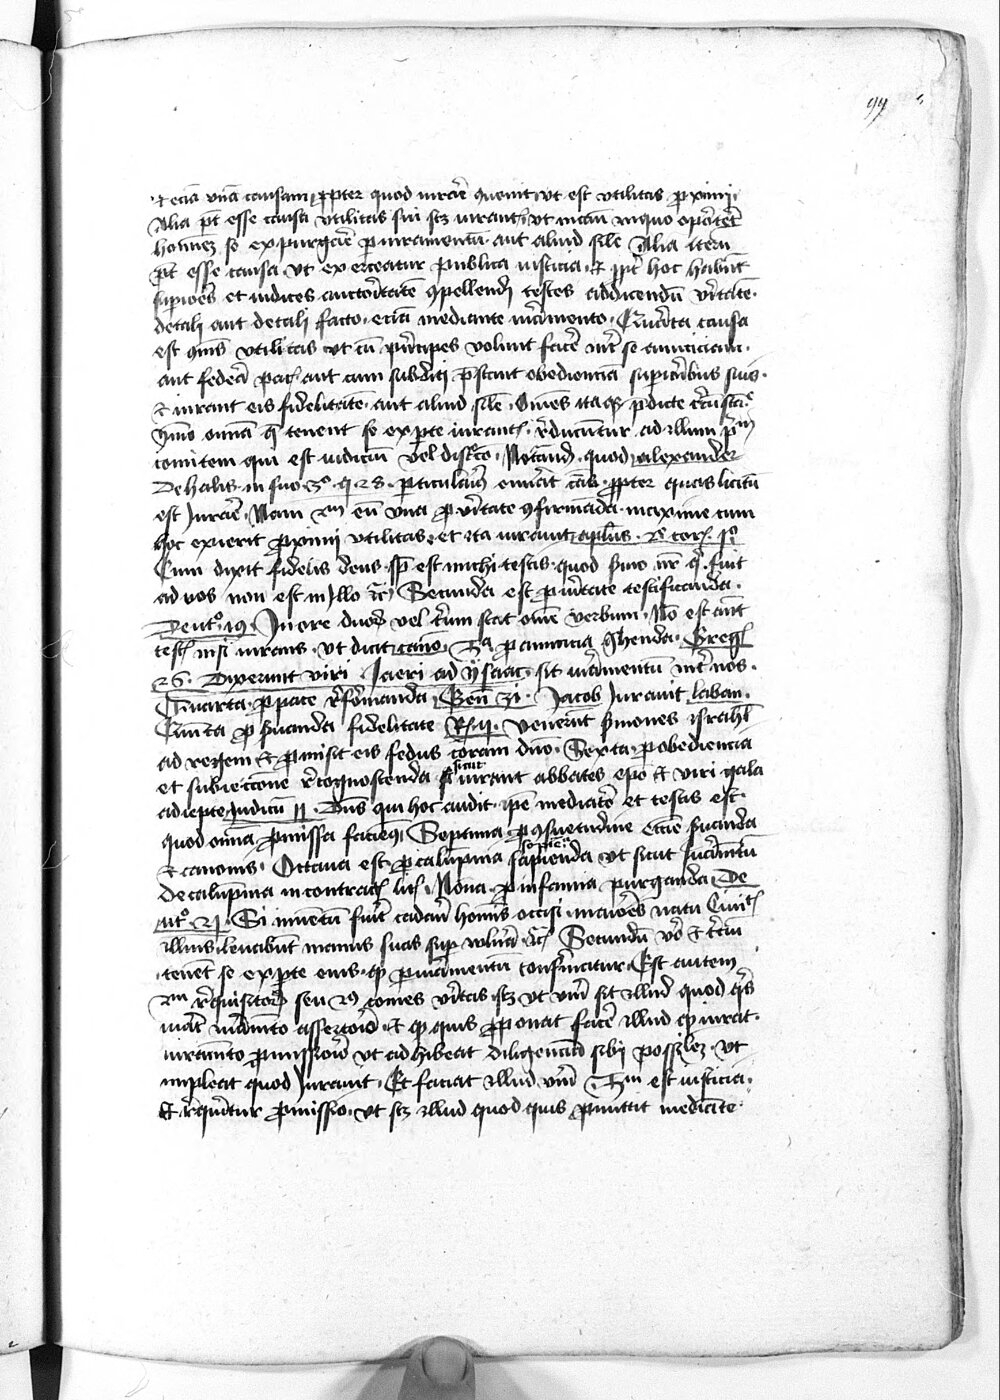 99
Et eciam vna causam propter quod iurare conuenit vt est vtilitas proximi
Alia potest esse causa vtilitas sui scilicet iurantis vt in casu in quo oportet
hominem se expurgare per iuramentum aut aliud simile Alia item
potest esse causa vt exerceatur publica iusticia Et propter hoc habent
superiores et iudices auctoritatem compellendi testes ad dicendum veritatem
de tali aut de tali facto eciam mediante iuramento Quarta causa
est communis vtilitas vt cum principes volunt facere inter se amiciciam
aut federa pacis aut cum subditi prestant obedienciam superioribus suis
Et iurant eis fidelitatem aut aliud simile Omnes itaque predicte circumstancie
ymmo omnia que tenent se ex parte iurantis reducuntur ad illum primum
comitem qui est iudicium vel discrecio Notandum quod alexander
de halis in suo 3º q 28 particularius enumerat causas propter quas licitum
est Iurare Nam est enim vna pro veritate confirmanda maxime cum
hoc exierit proximi vtilitas et ita iurauit apostolus 2 cor. 1º
Cum dixit fidelis deus est michi testis quod sermo noster qui fuit
ad vos non est in illo etc Secunda est pro veritate testificanda
Deutro 19 In ore duorum vel trium stat omne verbum Non est autem
testis nisi iurans vt dicit canon 3a pro amicicia habenda Gene.
26 Dixerunt viri Iaeri ad ysaac sit iuramentum inter nos
Quarta pro pace reformanda Gen 31 Jacob Iurauit laban
Quinta pro seruanda fidelitate R. ii venerunt seniores israhel
ad regem Et promisit eis fedus coram domino Sexta pro obediencia
et subieccione recognoscenda sicut iurant abbates episcopo Et viri galaad
ad iepte Iudicum 11 Dominus qui hoc audit ipse mediator et testis est
quod omnia promissa faciemus Septima pro consuetudine ecclesie seruanda
Et canonis Octaua est pro calumpnia sapienda vt sicut Iuramentum
de calumpnia in contractu litis Nona pro infamia purganda De
ut. 21 Si inuentum fuerit cadauer hominis occisi maiores natu Ciuitatis
illius leuabunt manus suas super vitulam etc Secundum vero Et tercium
tenet se ex parte eius quod per iuramentum confirmatur Est autem
requisitorum seu comes veritas scilicet vt verum sit illud quod quis
iurat iuramento assertorio Et quod quis proponat facere illud quod iurat
iuramento promissorio vt adhibeat diligenciam sibi possibilem vt
impleat quod Iurauit Et faciat illud verum Tercium est iusticia
Et requiritur promissio vt scilicet illud quod quis promittit mediante